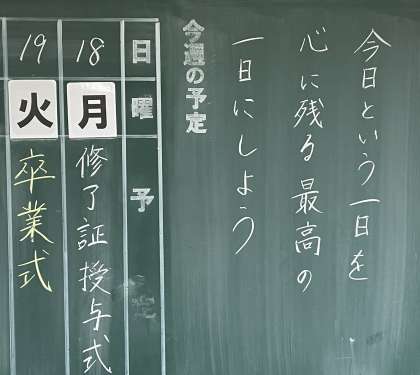 今日という一日を
心に残る最高の
一日にしよう
今週の予定
日 曜 予
18 月 修了証授与式
19 火 卒業式